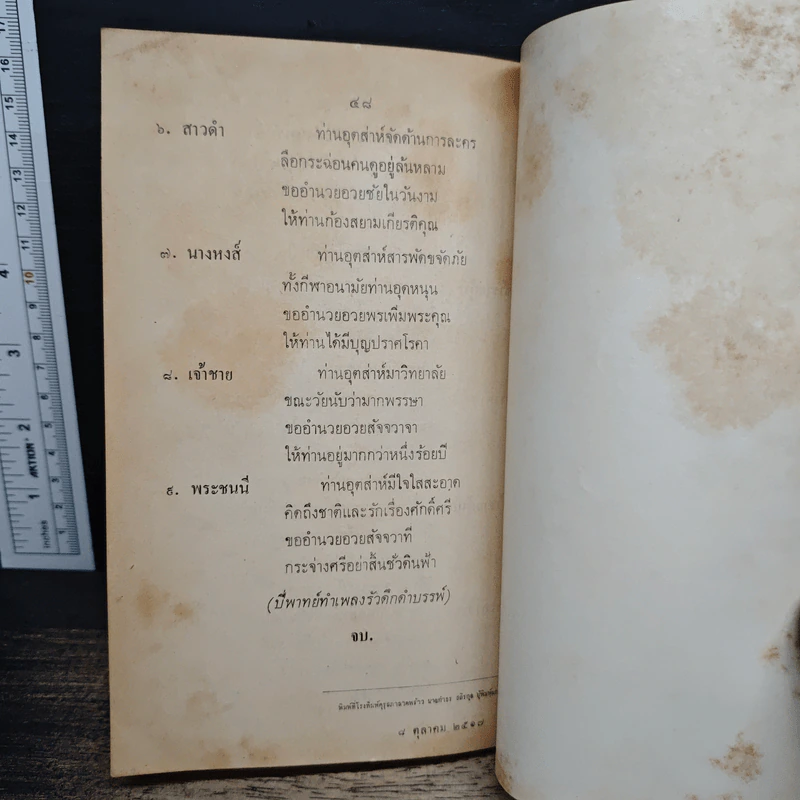 ๔๘
๖. สาวดำ ท่านอุตส่าห์จัดด้านการละคร
ลือกระฉ่อนคนดูอยู่ล้นหลาม
ขออำนวยอวยชัยในวันงาม
ให้ท่านก้องสยามเกียรติคุณ
๗. นางหงส์ ท่านอุตส่าห์สารพัดขจัดภัย
ทั้งกีฬาอนามัยท่านอุดหนุน
ขออำนวยอวยพรเพิ่มพระคุณ
ให้ท่านได้มีบุญปราศโรคา
๘. เจ้าชาย ท่านอุตส่าห์มาวิทยาลัย
ขณะวัยนับว่ามากพรรษา
ขออำนวยอวยสัจจวาจา
ให้ท่านอยู่มากกว่าหนึ่งร้อยปี
๙. พระชนนี ท่านอุตส่าห์มีใจใสสะอาด
คิดถึงชาติและรักเรื่องศักดิ์ศรี
ขออำนวยอวยสัจจวาที
กระจ่างศรีอย่าสิ้นชั่วดินฟ้า
(ปี่พาทย์ทำเพลงรัวดึกดำบรรพ์)
จบ.
พิมพ์ที่โรงพิมพ์คุรุสภาลาดพร้าว นายกำธร
๘ ตุลาคม ๒๕๑๗
17
16
15
14
13
12
11
10
9
8
7
6
5
4
3
2
1
4
3
2
1
inches
AKTION